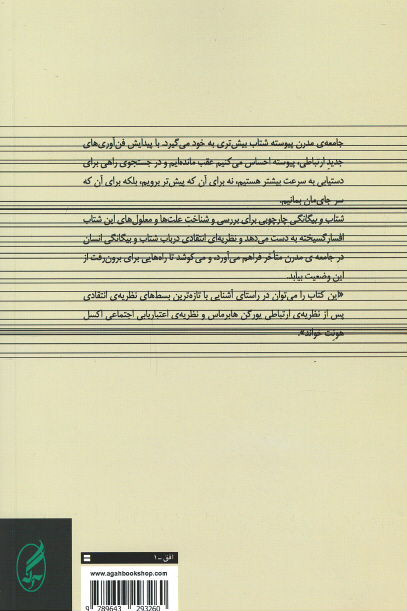 جامعه‌ی مدرن پیوسته شتاب بیش‌تری به خود می‌گیرد. با پیدایش فن‌آوری‌های
جدید ارتباطی، پیوسته احساس می‌کنیم عقب مانده‌ایم و در جستجوی راهی برای
دستیابی به سرعت بیشتر هستیم، نه برای آن که پیش‌تر برویم، بلکه برای آن که
سر جای‌مان بمانیم.
شتاب و بیگانگی چارچوبی برای بررسی و شناختِ علت‌ها و معلول‌های این شتاب
افسارگسیخته به دست می‌دهد و نظریه‌ای انتقادی درباب شتاب و بیگانگی انسان
در جامعه ی مدرن متأخر فراهم می‌آورد، و می‌کوشد تا راه‌هایی برای برون‌رفت از
این وضعیت بیابد.
«این کتاب را می‌توان در راستای آشنایی با تازه‌ترین بسط‌های نظریه‌ی انتقادی
پس از نظریه‌ی ارتباطی یورگن هابرماس و نظریه‌ی اعتباریابی اجتماعی اکسل
هونت خواند».
افق - ۱
www.agahbookshop.com
9 789643 293260